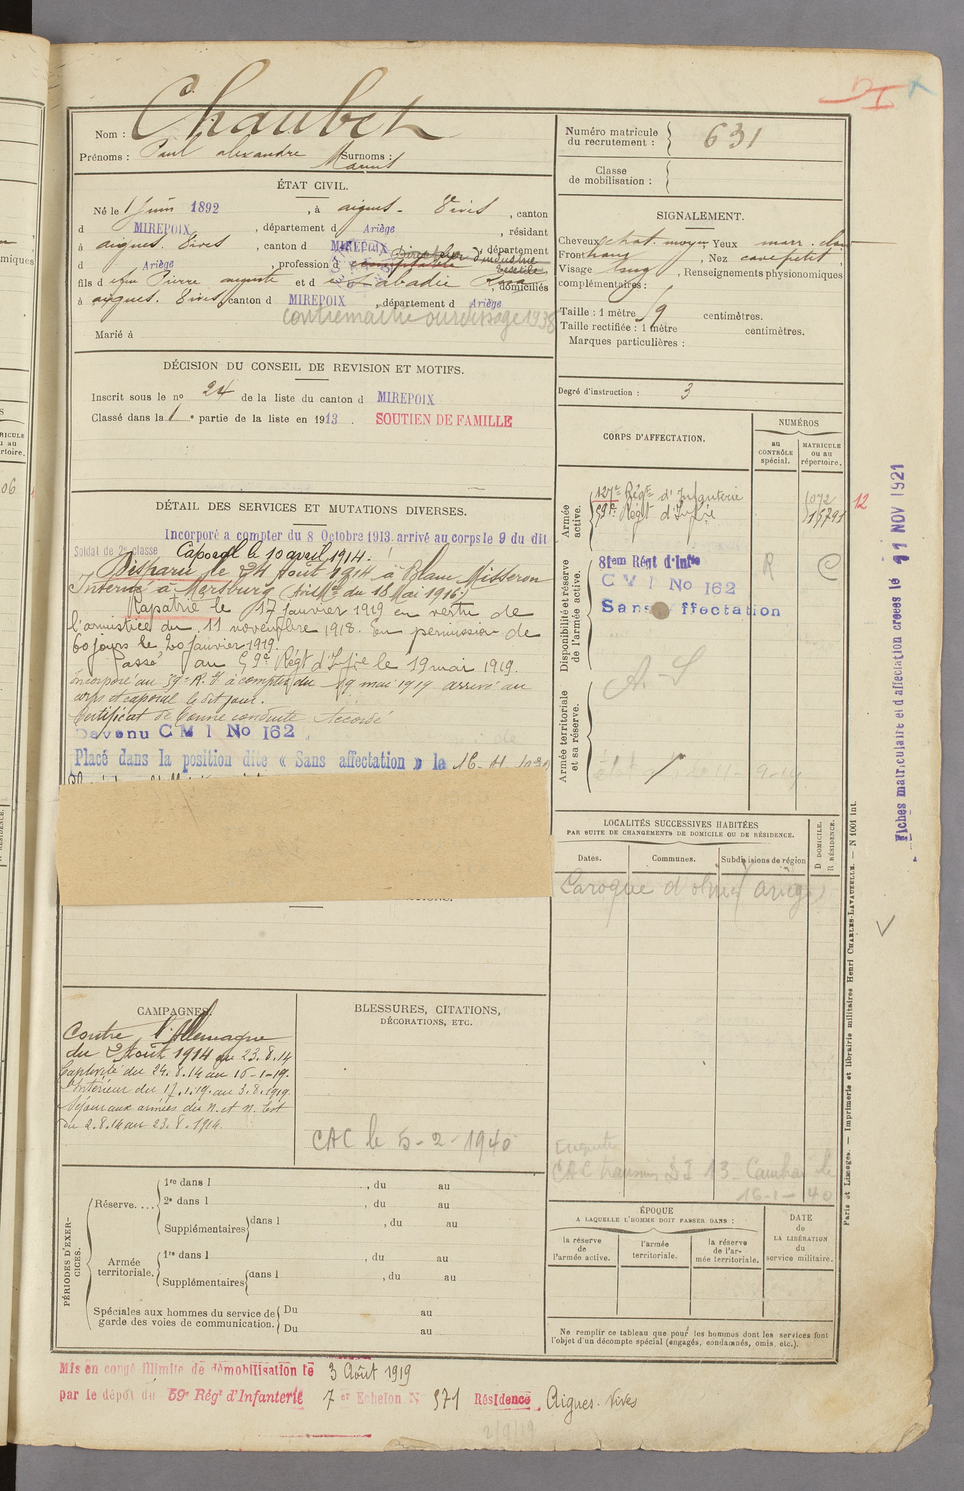 Nom : Chaubet
Prénoms : Paul alexandre Surnoms :
Numéro matricule du recrutement : 631
Classe de mobilisation :
ÉTAT CIVIL.
Né le 1 Juin 1892, à aigues-Vives, canton
d MIREPOIX, département d Ariège, résidant
à aigues-Vives, canton d MIREPOIX, département
d Ariège, profession d comptable Directeur d'industrie textile
fils d Pierre auguste et d Labadie Rosa, domiciliés
à aigues-Vives, canton d MIREPOIX, département d Ariège
contremaitre ourdissage 1938
Marié à
SIGNALEMENT.
Cheveux chat. moyen Yeux marr. clair
Front, Nez cave petit
Visage long, Renseignements physionomiques
complémentaires :
Taille : 1 mètre 59 centimètres.
Taille rectifiée : 1 mètre centimètres.
Marques particulières :
DÉCISION DU CONSEIL DE REVISION ET MOTIFS.
Inscrit sous le n° 24 de la liste du canton d MIREPOIX
Classé dans la 1e partie de la liste en 1913. SOUTIEN DE FAMILLE
Degré d'instruction : 3
CORPS D'AFFECTATION.
NUMÉROS
AU CONTRÔLE spécial.
MATRICULE OU AU répertoire.
Armée active.
127e Régt d'Infanterie 1072
59e Régt d'Infie
12
Disponibilité et réserve de l'armée active.
81em Régt d'Infie R C
C M I No 162
Sans Affectation
A-S
Armée territoriale et sa réserve.
DÉTAIL DES SERVICES ET MUTATIONS DIVERSES.
Incorporé a compter du 8 Octobre 1913 arrivé au corps le 9 du dit
Soldat de 2e classe Caporal le 10 avril 1914.
Disparu le 24 Août 1914 à Blanc Misseron
Interné à Mersburg (avis Mel du 18 Mai 1916)
Rapatrié le 17 Janvier 1919 en vertu de
l'armistice du 11 novembre 1918. En permission de
60 jours le 20 janvier 1919.
Passé au 59e Régt d'Infie le 19 mai 1919.
incorporé au 59e R.I. à compter du 19 mai 1919 arrivé au
corps et caporal le dit jour.
Certificat de bonne conduite Accordé
Devenu C M I No 162
Placé dans la position dite « Sans affectation » la
LOCALITÉS SUCCESSIVES HABITÉES
PAR SUITE DE CHANGEMENTS DE DOMICILE OU DE RÉSIDENCE.
Dates. Communes. Subdivisions de région
D DOMICILE.
R RÉSIDENCE.
Laroque d'olmes ariège
CAMPAGNES.
Contre l'Allemagne
du 2 Août 1914 au 23.8.14
Captivité du 24.8.14 au 16-1-19.
Intérieur du 17.1.19. au 3.8.1919.
Séjour aux armées du N. et N. Est
du 2.8.14 au 23.8.1914.
BLESSURES, CITATIONS,
DÉCORATIONS, ETC.
CAC le 5-2-1940
Enquête
CAC transmis
16-1-40
PÉRIODES D'EXERCICES.
Réserve....
1re dans l , du au
2e dans l , du au
Supplémentaires dans l , du au
Armée territoriale.
1re dans l , du au
Supplémentaires dans l , du au
Spéciales aux hommes du service de garde des voies de communication.
Du au
Du au
ÉPOQUE
A LAQUELLE L'HOMME DOIT PASSER DANS :
la réserve de l'armée active.
l'armée territoriale.
la réserve de l'armée territoriale.
DATE de LA LIBÉRATION du service militaire.
Ne remplir ce tableau que pour les hommes dont les services font
l'objet d'un décompte spécial (engagés, condamnés, omis, etc.).
Mis en congé illimité de démobilisation le 3 Août 1919
par le dépôt du 59e Régt d'Infanterie 7 er Echelon N° 971 Résidence Aigues-Vives
2/9/19
Fiches matriculaire et d'affectation créées le 11 NOV 1921
Paris et Limoges. — Imprimerie et librairie militaires Henri CHARLES-LAVAUZELLE. — N 1001 int.